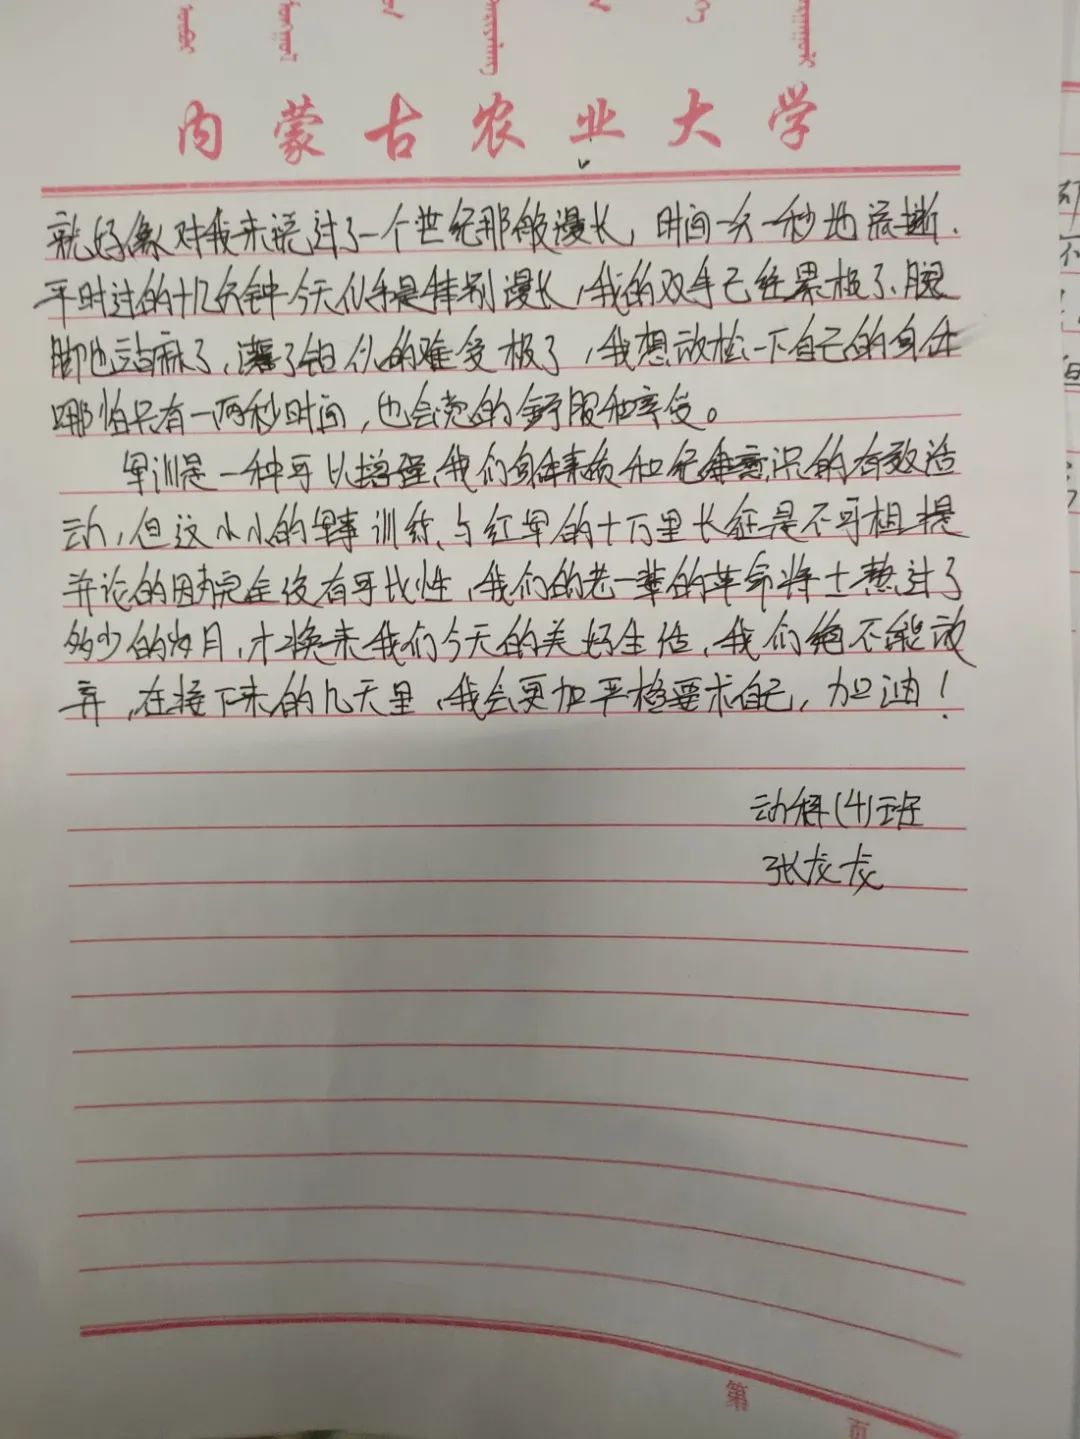 内蒙古农业大学
就好像对我来说过了一个世纪那般漫长，时间一分一秒地流逝，
平时过的十几分钟今天似乎是特别漫长，我的双手已经累极了、腿
脚也站麻了，灌了铅似的难受极了，我想放松一下自己的身体
哪怕只有一两秒时间，也会觉的舒服和享受。
军训是一种可以增强我们身体素质和纪律意识的有效活
动，但这小小的军事训练与红军的十万里长征是不可相提
并论的因为完全没有可比性，我们的老一辈的革命将士熬过了
多少的岁月，才换来我们今天的美好生活，我们绝不能放
弃，在接下来的几天里，我会更加严格要求自己，加油！
动科(4)班
张龙龙
第 页